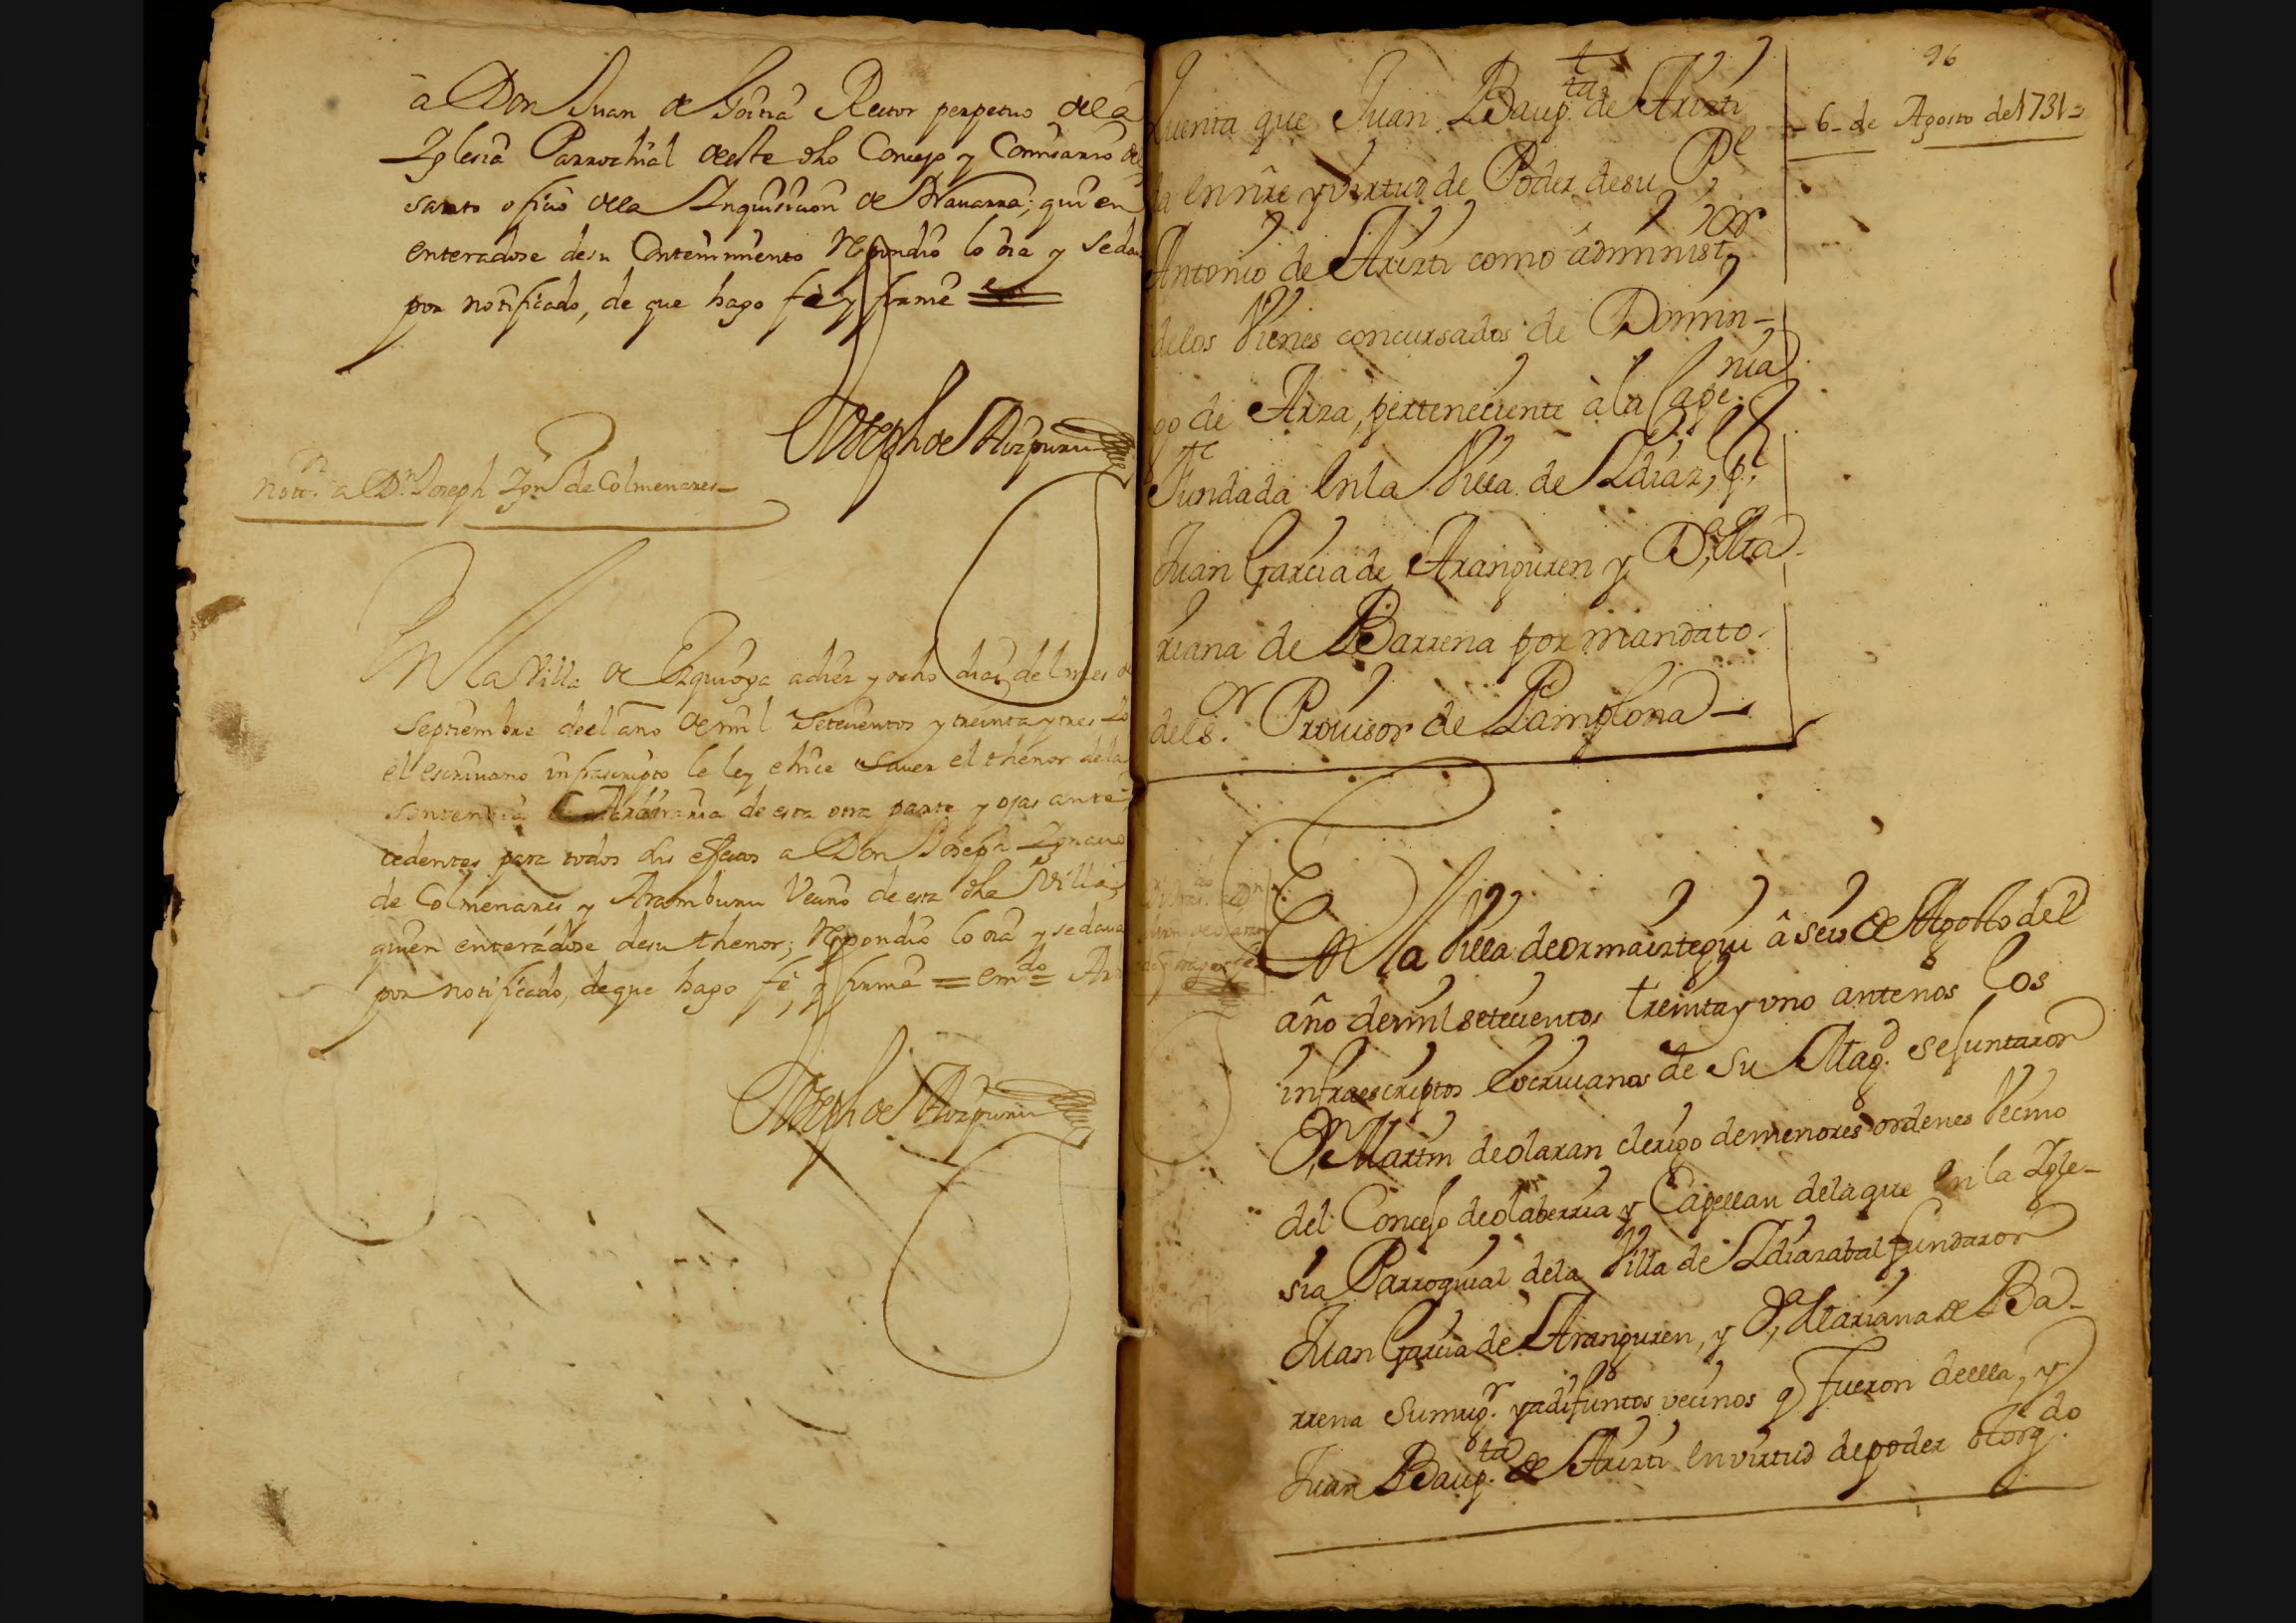 a Don Juan de Goitia Rector perpetuo de la
Iglesia Parrochial de este dho Concejo y Comisario del
santo oficio de la Inquisicion de Navarra; quien
enteradose de su Contenimiento Respondio lo oia y se dava
por notificado, de que hago fe y firme
Joseph de Aizpuru
Nottn. a Dn. Joseph Ign. de Colmenares
En la Villa de Ezquioga a diez y ocho dias del mes de
Septiembre de el año de mil Setecientos y treinta y tres Yo
el escrivano infrascripto le ley e hice saver el thenor de la
sentencia Arbitraria de esta otra parte y ojas ante
cedentes para todos sus efectos a Don Joseph Ignacio
de Colmenares y Aramburu Vecino de esta dha Villa,
quien enteradose de su thenor; Respondio lo oia y se dava
por notificado, de que hago fe, y firme = emdo = Ar
Joseph de Aizpuru
96
Quenta que Juan Baupta. de Arizti
da en nre y virtud de Poder de su Pe
Antonio de Arizti como administor
de los Vienes concursados de Domin-
go de Arza, perteneciente à la Capenia
Fundada en la Villa de Ydiaz, pr.
Juan Garcia de Aranguren y Da. Ma
riana de Barrena por mandato
del Sor. Provisor de Pamplona
- 6 - de Agosto de 1731 =
En la Villa de ormaiztegui â seis de Agosto del
año de mil setecientos treinta y uno ante nos los
infraescriptos Escrivanos de Su Magd. se juntaron
Dn. Martin de olaran clerigo de menores ordenes Vecino
del Concejo de olaberria y Capellan de la que en la Ygle-
sia Parroquial de la Villa de Ydiazabal fundaron
Juan Garcia de Aranguren, y Da. Mariana de Ba-
rrena su mugr. ya difuntos vecinos q fueron de ella, y
Juan Baupta. de Arizti en virtud de poder otorgdo.